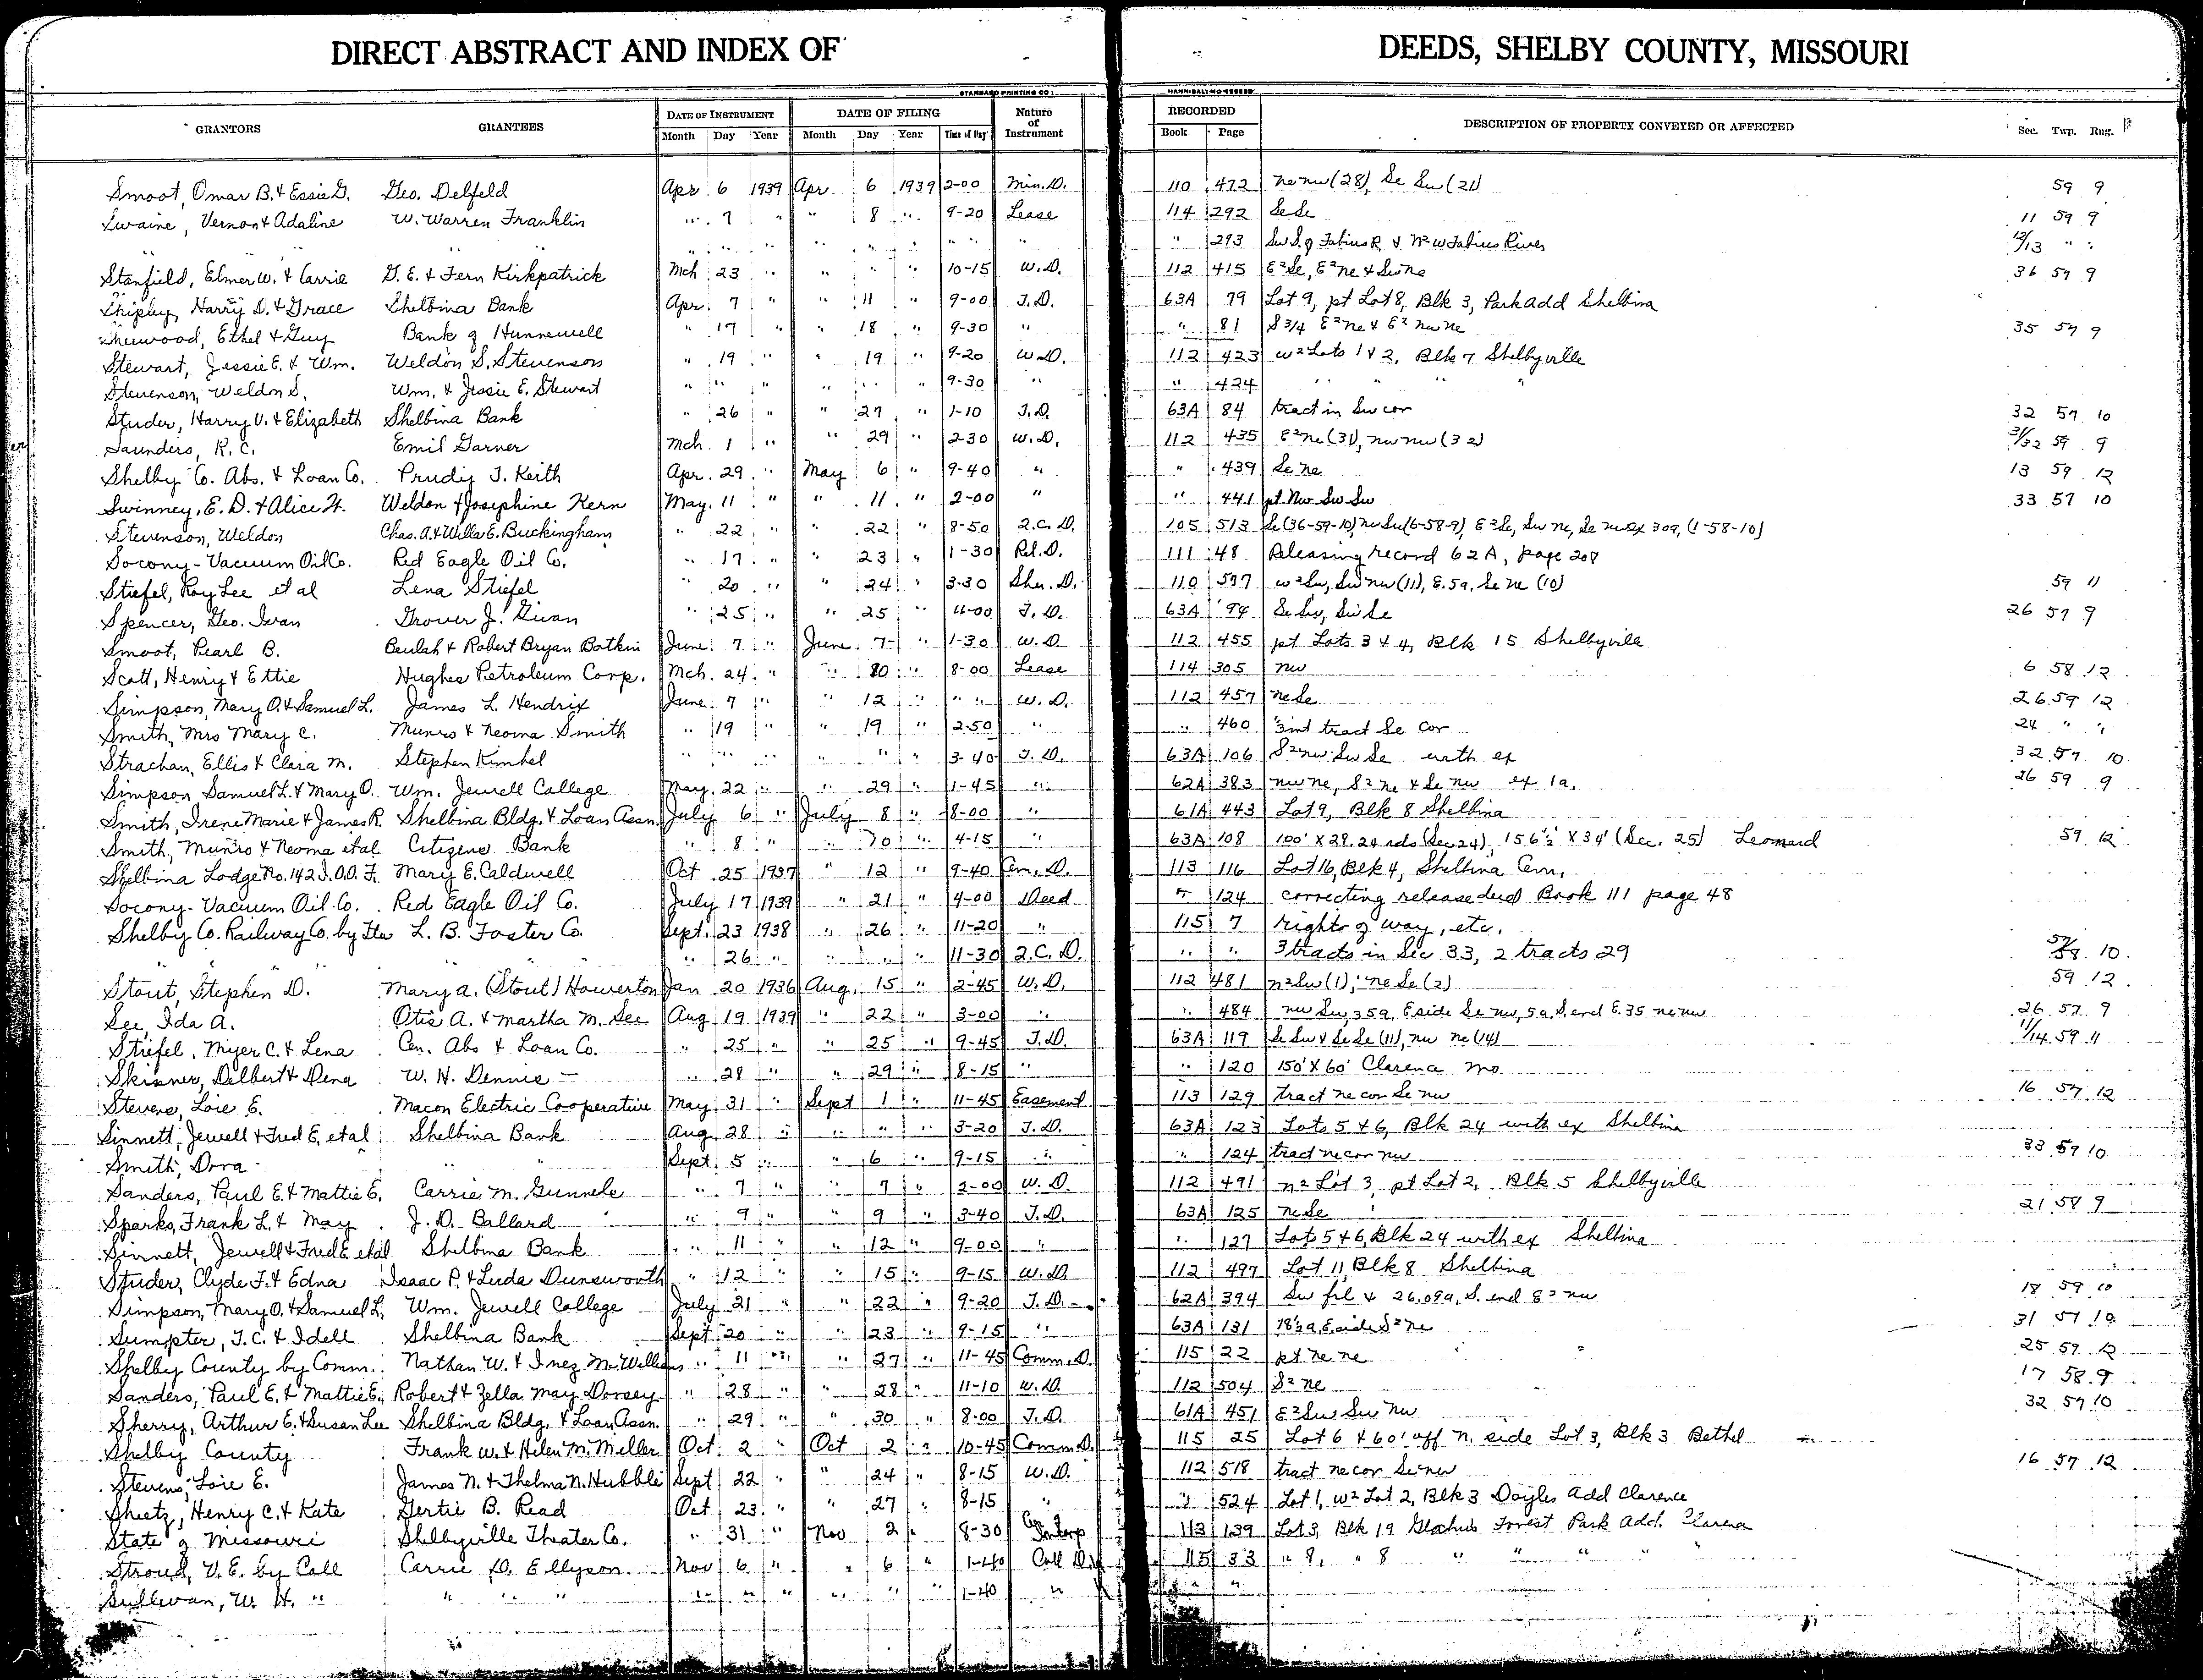 DIRECT ABSTRACT AND INDEX OF DEEDS, SHELBY COUNTY, MISSOURI
STANDARD PRINTING CO.
GRANTORS GRANTEES DATE OF INSTRUMENT DATE OF FILING Nature of Instrument RECORDED DESCRIPTION OF PROPERTY CONVEYED OR AFFECTED Sec. Twp. Rng.
Month Day Year Month Day Year Time of Day Book Page
Smoot, Omar B. & Essie G. Geo. Delfeld Apr 6 1939 Apr 6 1939 2-00 Min. D. 110 472 ne nw (28), Se Sw (21) 59 9
Swaine, Vernon & Adaline W. Warren Franklin " 7 " " 8 " 9-20 Lease 114 292 Se Se 11 59 9
" " " " " " " " " " " " 293 Sw S. of Fabius R. & N2 W Fabius River 12/13 " "
Stanfield, Elmer W. & Carrie G. E. & Fern Kirkpatrick Mch 23 " " " " 10-15 W. D. 112 415 E2 Se, E2 ne & Sw ne 36 59 9
Shipley, Harry D. & Grace Shelbina Bank Apr. 7 " " 11 " 9-00 T. D. 63A 79 Lot 9, pt Lot 8, Blk 3, Park add Shelbina
Sherwood, Ethel & Guy Bank of Hunnewell " 17 " " 18 " 9-30 " " 81 S 3/4 E2 ne & E2 nw ne 35 57 9
Stewart, Jessie E. & Wm. Weldon S. Stevenson " 19 " " 19 " 9-20 W. D. 112 423 W2 Lots 1 & 2, Blk 7 Shelbyville
Stevenson, Weldon S. Wm. & Jessie E. Stewart " " " " " " 9-30 " " 424 " " " "
Studer, Harry V. & Elizabeth Shelbina Bank " 26 " " 27 " 1-10 T. D. 63A 84 tract in Sw cor 32 57 10
Saunders, R. C. Emil Garner Mch. 1 " " 29 " 2-30 W. D. 112 435 E2 ne (31), nw nw (32) 31/32 59 9
Shelby Co. Abs. & Loan Co. Prudy J. Keith Apr. 29 " May 6 " 9-40 " " 439 Se ne 13 59 12
Swinney, E. D. & Alice H. Weldon & Josephine Kern May 11 " " 11 " 2-00 " " 441 pt. Nw Sw Sw 33 57 10
Stevenson, Weldon Chas. A. & Willa E. Buckingham " 22 " " 22 " 8-50 Q. C. D. 105 513 Se (36-59-10), nw Sw (6-58-9), E2 Se, Sw ne, Se nw ex 30a, (1-58-10)
Socony-Vacuum Oil Co. Red Eagle Oil Co. " 17 " " 23 " 1-30 Rel. D. 111 48 Releasing record 62A, page 208
Stiefel, Roy Lee et al Lena Stiefel " 20 " " 24 " 3-30 Sher. D. 110 597 W2 Sw, Sw nw (11), E. 5a, Se ne (10) 59 11
Spencer, Geo. Ivan Grover J. Givan " 25 " " 25 " 11-00 T. D. 63A 94 Se Sw, Sw Se 26 57 9
Smoot, Pearl B. Beulah & Robert Bryan Botkin June 7 " June 7 " 1-30 W. D. 112 455 pt Lots 3 & 4, Blk 15 Shelbyville
Scott, Henry & Ettie Hughes Petroleum Corp. Mch. 24 " " 10 " 8-00 Lease 114 305 nw 6 58 12
Simpson, Mary O. & Samuel L. James L. Hendrix June 7 " " 12 " " " W. D. 112 457 ne Se 26 59 12
Smith, Mrs Mary C. Munro & Neoma Smith " 19 " " 19 " 2-50 " " 460 int tract Se cor 24 " "
Strachan, Ellis & Clara M. Stephen Kimbel " " " " " " 3-40 T. D. 63A 106 S2 nw Sw Se with ex 32 57 10
Simpson Samuel L. & Mary O. Wm. Jewell College May 22 " " 29 " 1-45 " 62A 383 nw ne, S2 ne & Se nw ex 1a. 26 59 9
Smith, Irene Marie & James R. Shelbina Bldg. & Loan Assn. July 6 " July 8 " 8-00 " 61A 443 Lot 9, Blk 8 Shelbina
Smith, Munro & Neoma et al Citizens Bank " 8 " " 10 " 4-15 " 63A 108 100' X 29.24 rds (Sec 24), 156½' X 34' (Sec. 25) Leonard 59 12
Shelbina Lodge No. 142 I.O.O.F. Mary E. Caldwell Oct 25 1937 " 12 " 9-40 Cem. D. 113 116 Lot 16, Blk 4, Shelbina Cem.
Socony-Vacuum Oil Co. Red Eagle Oil Co. July 17 1939 " 21 " 4-00 Deed " 124 correcting release deed Book 111 page 48
Shelby Co. Railway Co. by L. B. Foster Co. Sept. 23 1938 " 26 " 11-20 " 115 7 rights of way, etc.
" " " " 26 " " " " 11-30 Q. C. D. " " 3 tracts in Sec 33, 2 tracts 29 57/58 10
Stout, Stephen D. Mary A. (Stout) Howerton Jan 20 1936 Aug. 15 " 2-45 W. D. 112 481 n2 Sw (1), ne Se (2) 59 12
See, Ida A. Otis A. & Martha M. See Aug 19 1939 " 22 " 3-00 " " 484 nw Sw, 35a, E side Se nw, 5a, S. end E. 35 ne nw 26 57 9
Stiefel, Myer C. & Lena Cen. Abs & Loan Co. " 25 " " 25 " 9-45 T. D. 63A 119 Se Sw & Se Se (11), nw ne (14) 11/14 59 11
Skinner, Delbert & Dena W. H. Dennis " 28 " " 29 " 8-15 " " 120 150' X 60' Clarence Mo
Stevens, Loie E. Macon Electric Cooperative May 31 " Sept 1 " 11-45 Easement 113 129 tract ne cor Se nw 16 57 12
Sinnett, Jewell & Fred E. et al Shelbina Bank Aug 28 " " " " 3-20 T. D. 63A 123 Lots 5 & 6, Blk 24 with ex Shelbina
Smith, Dora " " Sept 5 " " 6 " 9-15 " " 124 tract ne cor nw 33 59 10
Sanders, Paul E. & Mattie E. Carrie M. Gunnele " 7 " " 7 " 2-00 W. D. 112 491 n2 Lot 3, pt Lot 2, Blk 5 Shelbyville
Sparks, Frank L. & May J. D. Ballard " 9 " " 9 " 3-40 T. D. 63A 125 ne Se 21 58 9
Sinnett, Jewell & Fred E. et al Shelbina Bank " 11 " " 12 " 9-00 " " 127 Lots 5 & 6, Blk 24 with ex Shelbina
Studer, Clyde F. & Edna Isaac P. & Luda Dunsworth " 12 " " 15 " 9-15 W. D. 112 497 Lot 11, Blk 8 Shelbina
Simpson, Mary O. & Samuel L. Wm. Jewell College July 21 " " 22 " 9-20 T. D. 62A 394 Sw frl & 26.09a, S. end E2 nw 18 59 10
Sumpter, T. C. & Idell Shelbina Bank Sept 20 " " 23 " 9-15 " 63A 131 18½a, E. side S2 ne 31 57 10
Shelby County by Comm. Nathan W. & Inez McWilliams " 11 " " 27 " 11-45 Comm. D. 115 22 pt ne ne 25 59 12
Sanders, Paul E. & Mattie E. Robert & Zella May Dorsey " 28 " " 28 " 11-10 W. D. 112 504 S2 ne 17 58 9
Sherry, Arthur E. & Susan Lee Shelbina Bldg. & Loan Assn. " 29 " " 30 " 8-00 T. D. 61A 451 E2 Sw Sw nw 32 59 10
Shelby County Frank W. & Helen M. Miller Oct. 2 " Oct 2 " 10-45 Comm D. 115 25 Lot 6 & 60' off N. side Lot 3, Blk 3 Bethel
Stevens, Loie E. James N. & Thelma N. Hubble Sept 22 " " 24 " 8-15 W. D. 112 518 tract ne cor Se nw 16 57 12
Sheetz, Henry C. & Kate Gertie B. Read Oct 23 " " 27 " 8-15 " " 524 Lot 1, W2 Lot 2, Blk 3 Doyles Add Clarence
State of Missouri Shelbyville Theater Co. " 31 " Nov 2 " 8-30 113 139 Lot 3, Blk 19 Forest Park Add. Clarence
Stroud, V. E. by Coll Carrie D. Ellyson Nov 6 " " 6 " 1-40 Coll D. 115 33 " 9, " 8 " " " " "
Sullivan, W. H. " " " " " " " " " " 1-40 " " "